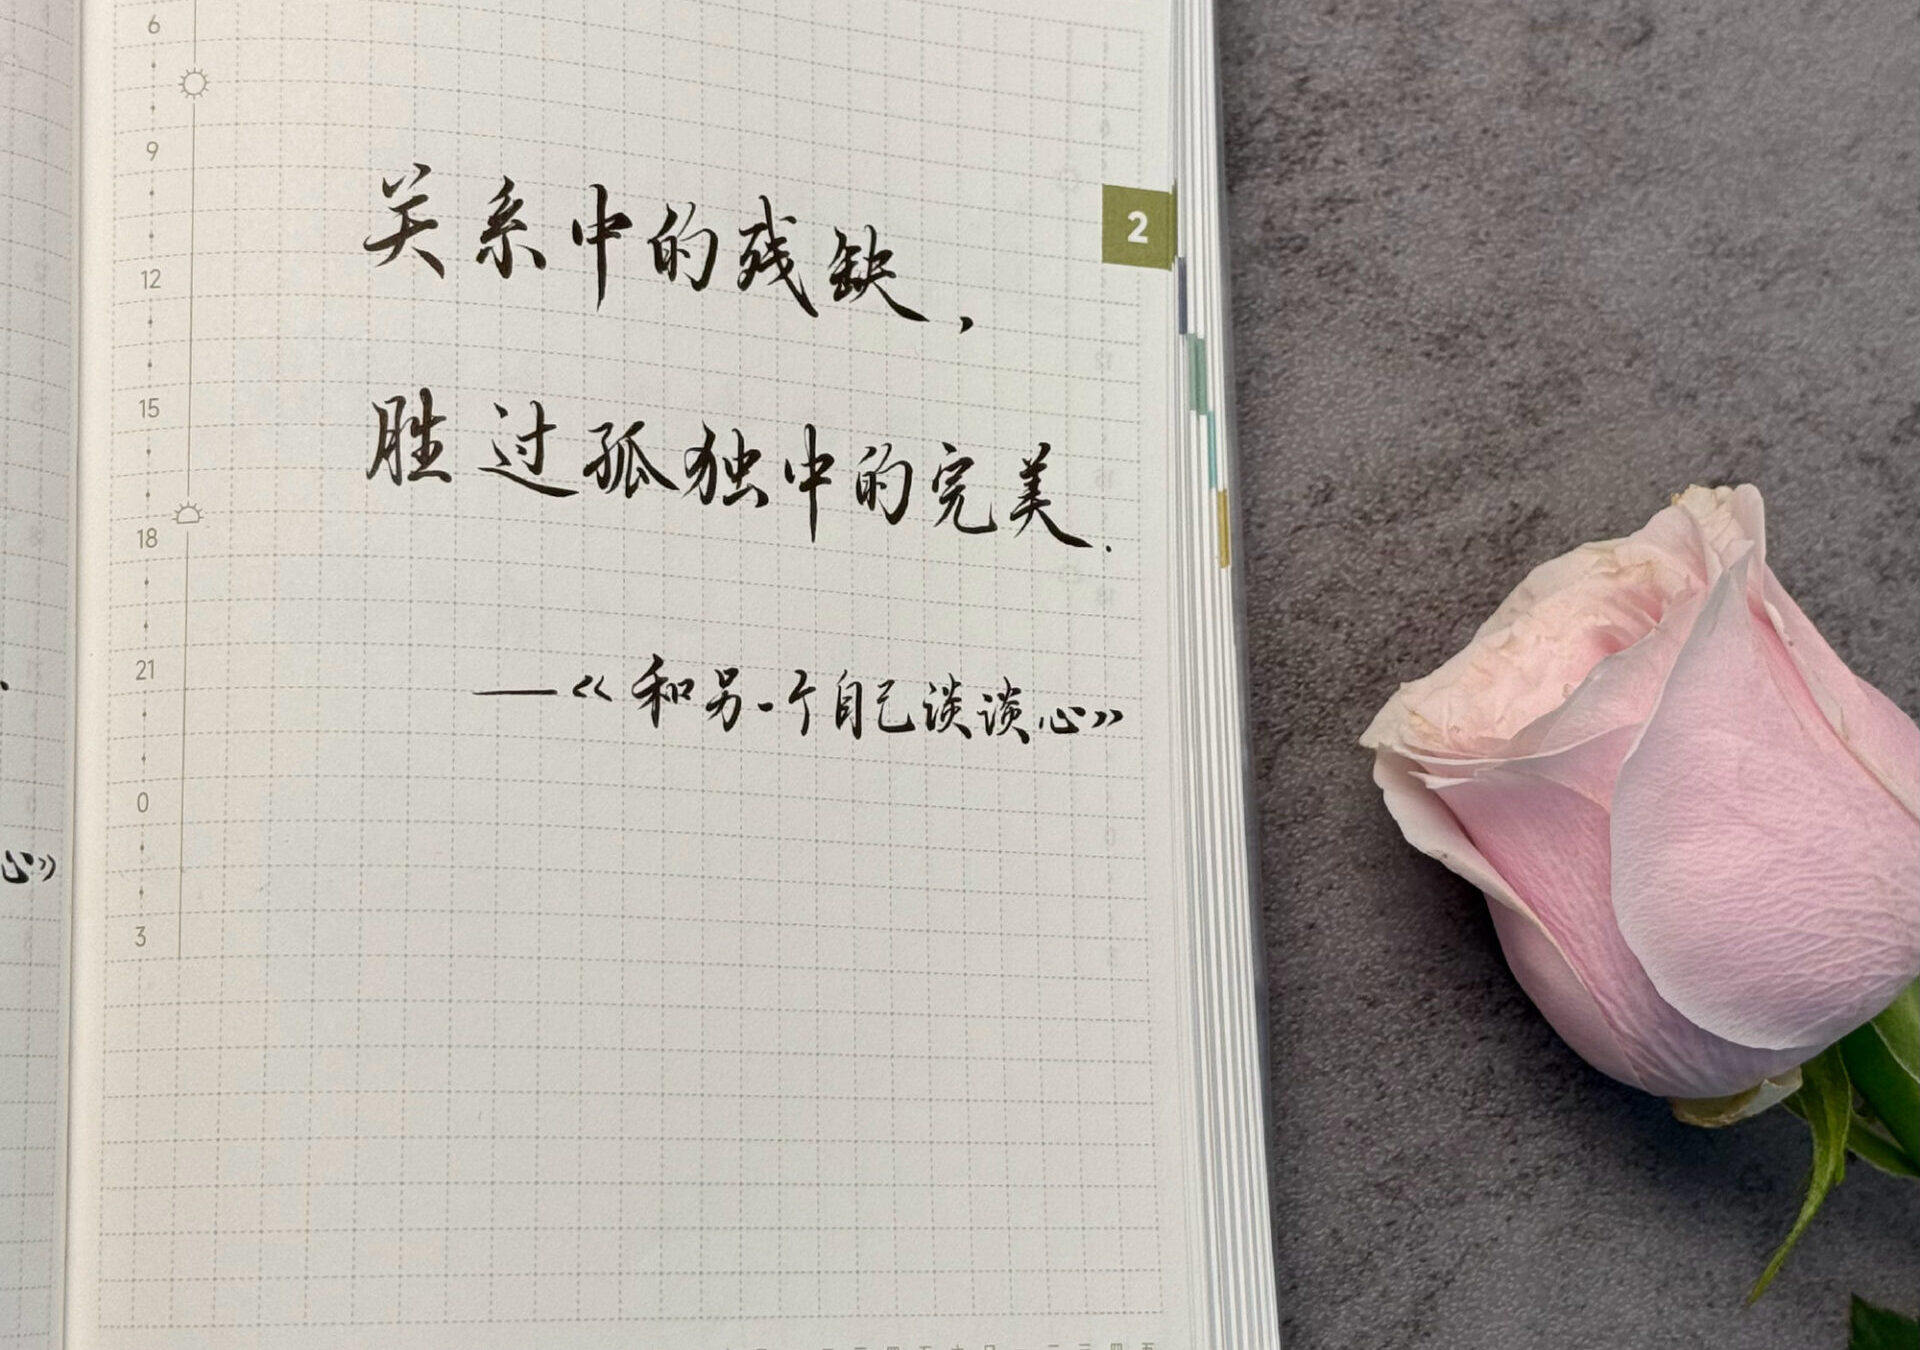 6
9
12
15
18
21
0
3
2
关系中的残缺，
胜过孤独中的完美.
——《和另一个自己谈谈心》
心》